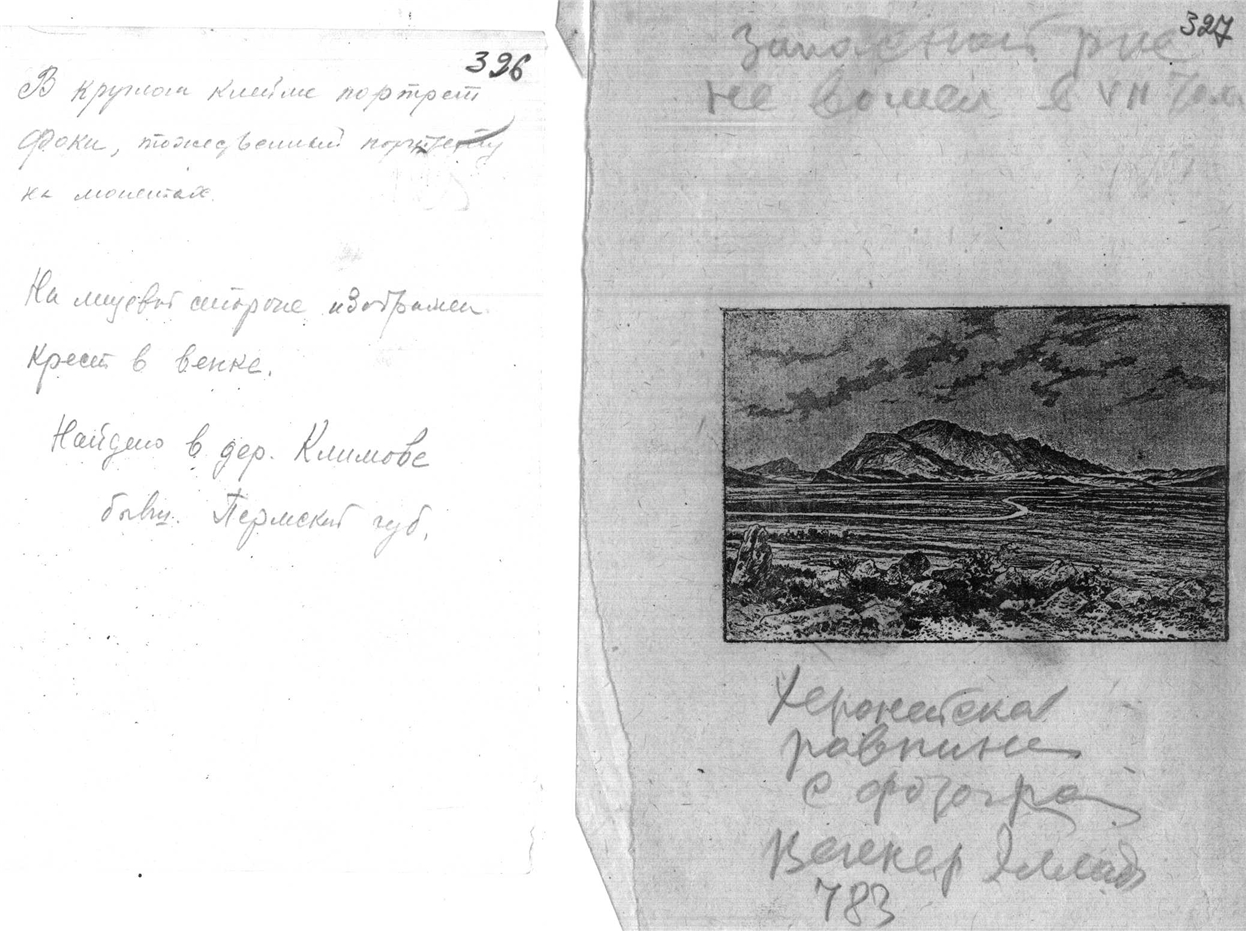 326
В круглом клейме портрет
Фоки, тожедвенный портрету
на монетах.
На лицевой стороне изображен
крест в венке.
Найдено в дер. Климове
бывш. Пермской губ.
327
Запасной рис
не вошел в VII
Херонейская
равнина
с фотогра
Вегнер Эллада
783